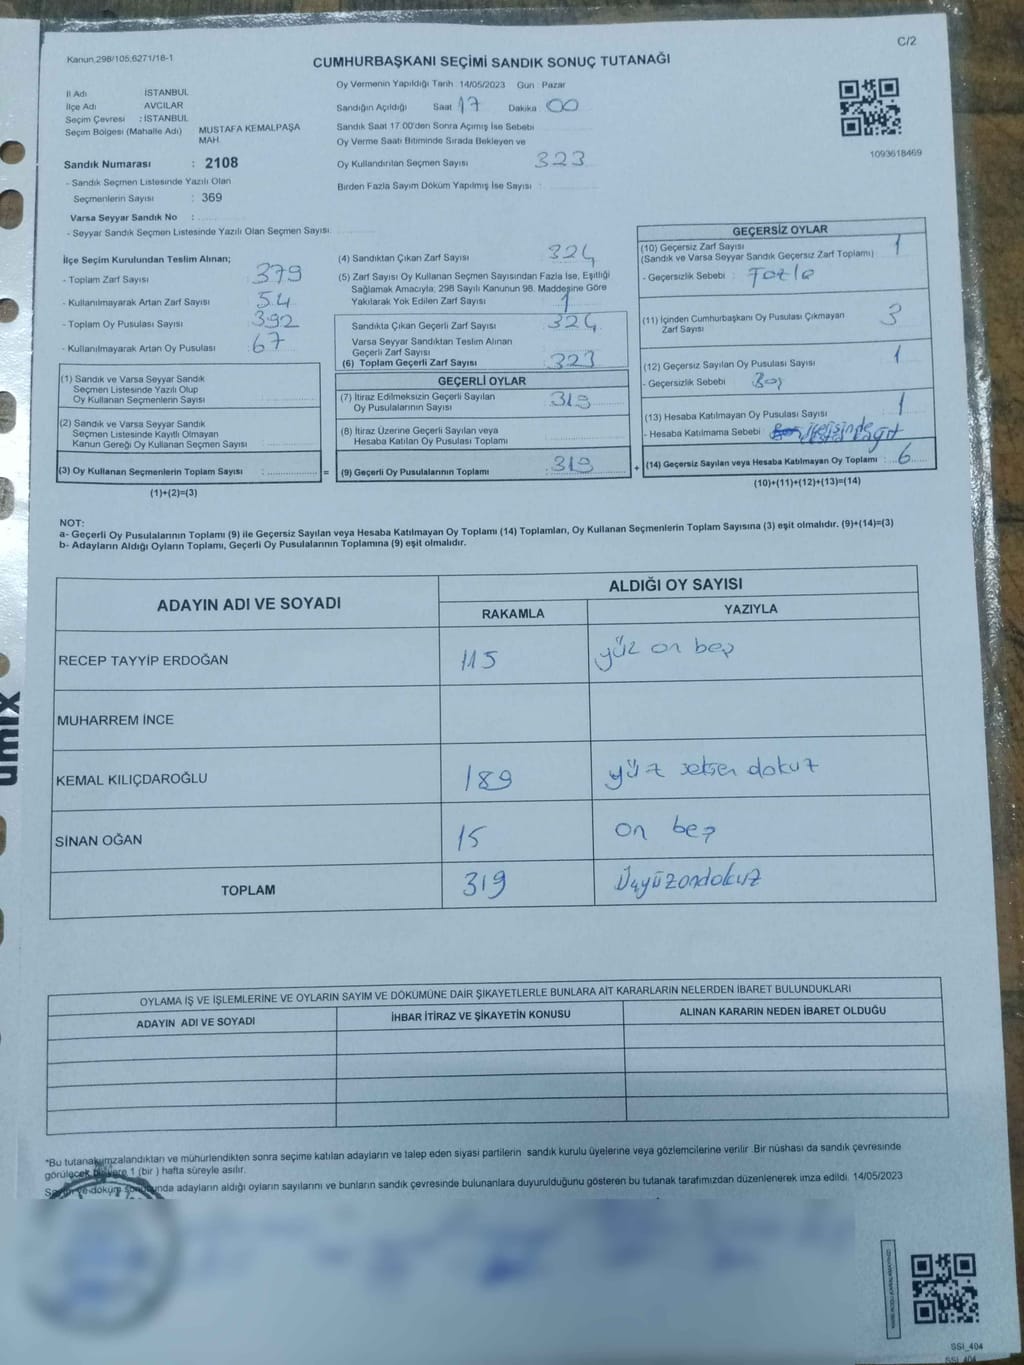 C/2
Kanun,298/105,6271/18-1
CUMHURBAŞKANI SEÇİMİ SANDIK SONUÇ TUTANAĞI
İl Adı İSTANBUL
İlçe Adı AVCILAR
Seçim Çevresi : İSTANBUL
Seçim Bölgesi (Mahalle Adı) MUSTAFA KEMALPAŞA MAH
Sandık Numarası : 2108
- Sandık Seçmen Listesinde Yazılı Olan
Seçmenlerin Sayısı : 369
Varsa Seyyar Sandık No :
- Seyyar Sandık Seçmen Listesinde Yazılı Olan Seçmen Sayısı:
Oy Vermenin Yapıldığı Tarih :14/05/2023 Gün : Pazar
Sandığın Açıldığı Saat 17 Dakika 00
Sandık Saat 17.00'den Sonra Açmış İse Sebebi
Oy Verme Saati Bitiminde Sırada Bekleyen ve
Oy Kullandırılan Seçmen Sayısı 323
Birden Fazla Sayım Döküm Yapılmış İse Sayısı :
1093618469
İlçe Seçim Kurulundan Teslim Alınan;
- Toplam Zarf Sayısı 379
- Kullanılmayarak Artan Zarf Sayısı 54
- Toplam Oy Pusulası Sayısı 392
- Kullanılmayarak Artan Oy Pusulası : 67
(1) Sandık ve Varsa Seyyar Sandık
Seçmen Listesinde Yazılı Olup
Oy Kullanan Seçmenlerin Sayısı
(2) Sandık ve Varsa Seyyar Sandık
Seçmen Listesinde Kayıtlı Olmayan
Kanun Gereği Oy Kullanan Seçmen Sayısı
(3) Oy Kullanan Seçmenlerin Toplam Sayısı : =
(1)+(2)=(3)
(4) Sandıktan Çıkan Zarf Sayısı 324
(5) Zarf Sayısı Oy Kullanan Seçmen Sayısından Fazla İse, Eşitliği
Sağlamak Amacıyla; 298 Sayılı Kanunun 98. Maddesine Göre
Yakılarak Yok Edilen Zarf Sayısı 1
Sandıkta Çıkan Geçerli Zarf Sayısı 324
Varsa Seyyar Sandıktan Teslim Alınan
Geçerli Zarf Sayısı
(6) Toplam Geçerli Zarf Sayısı 323
GEÇERLİ OYLAR
(7) İtiraz Edilmeksizin Geçerli Sayılan
Oy Pusulalarının Sayısı 319
(8) İtiraz Üzerine Geçerli Sayılan veya
Hesaba Katılan Oy Pusulası Toplamı
(9) Geçerli Oy Pusulalarının Toplamı 319 +
GEÇERSİZ OYLAR
(10) Geçersiz Zarf Sayısı 1
(Sandık ve Varsa Seyyar Sandık Geçersiz Zarf Toplamı)
- Geçersizlik Sebebi : Fazla
(11) İçinden Cumhurbaşkanı Oy Pusulası Çıkmayan
Zarf Sayısı 3
(12) Geçersiz Sayılan Oy Pusulası Sayısı 1
- Geçersizlik Sebebi Boş
(13) Hesaba Katılmayan Oy Pusulası Sayısı 1
- Hesaba Katılmama Sebebi
(14) Geçersiz Sayılan veya Hesaba Katılmayan Oy Toplamı : 6
(10)+(11)+(12)+(13)=(14)
NOT:
a- Geçerli Oy Pusulalarının Toplamı (9) ile Geçersiz Sayılan veya Hesaba Katılmayan Oy Toplamı (14) Toplamları, Oy Kullanan Seçmenlerin Toplam Sayısına (3) eşit olmalıdır. (9)+(14)=(3)
b- Adayların Aldığı Oyların Toplamı, Geçerli Oy Pusulalarının Toplamına (9) eşit olmalıdır.
ADAYIN ADI VE SOYADI ALDIĞI OY SAYISI
RAKAMLA YAZIYLA
RECEP TAYYİP ERDOĞAN 115 yüz on beş
MUHARREM İNCE
KEMAL KILIÇDAROĞLU 189 yüz seksen dokuz
SİNAN OĞAN 15 on beş
TOPLAM 319 Üçyüzondokuz
OYLAMA İŞ VE İŞLEMLERİNE VE OYLARIN SAYIM VE DÖKÜMÜNE DAİR ŞİKAYETLERLE BUNLARA AİT KARARLARIN NELERDEN İBARET BULUNDUKLARI
ADAYIN ADI VE SOYADI İHBAR İTİRAZ VE ŞİKAYETİN KONUSU ALINAN KARARIN NEDEN İBARET OLDUĞU
*Bu tutanak imzalandıktan ve mühürlendikten sonra seçime katılan adayların ve talep eden siyasi partilerin sandık kurulu üyelerine veya gözlemcilerine verilir. Bir nüshası da sandık çevresinde
görülecek bir yere 1 (bir) hafta süreyle asılır.
Sayım ve döküm sonucunda adayların aldığı oyların sayılarını ve bunların sandık çevresinde bulunanlara duyurulduğunu gösteren bu tutanak tarafımızdan düzenlenerek imza edildi. 14/05/2023
SSI_404
SSI_404
umix